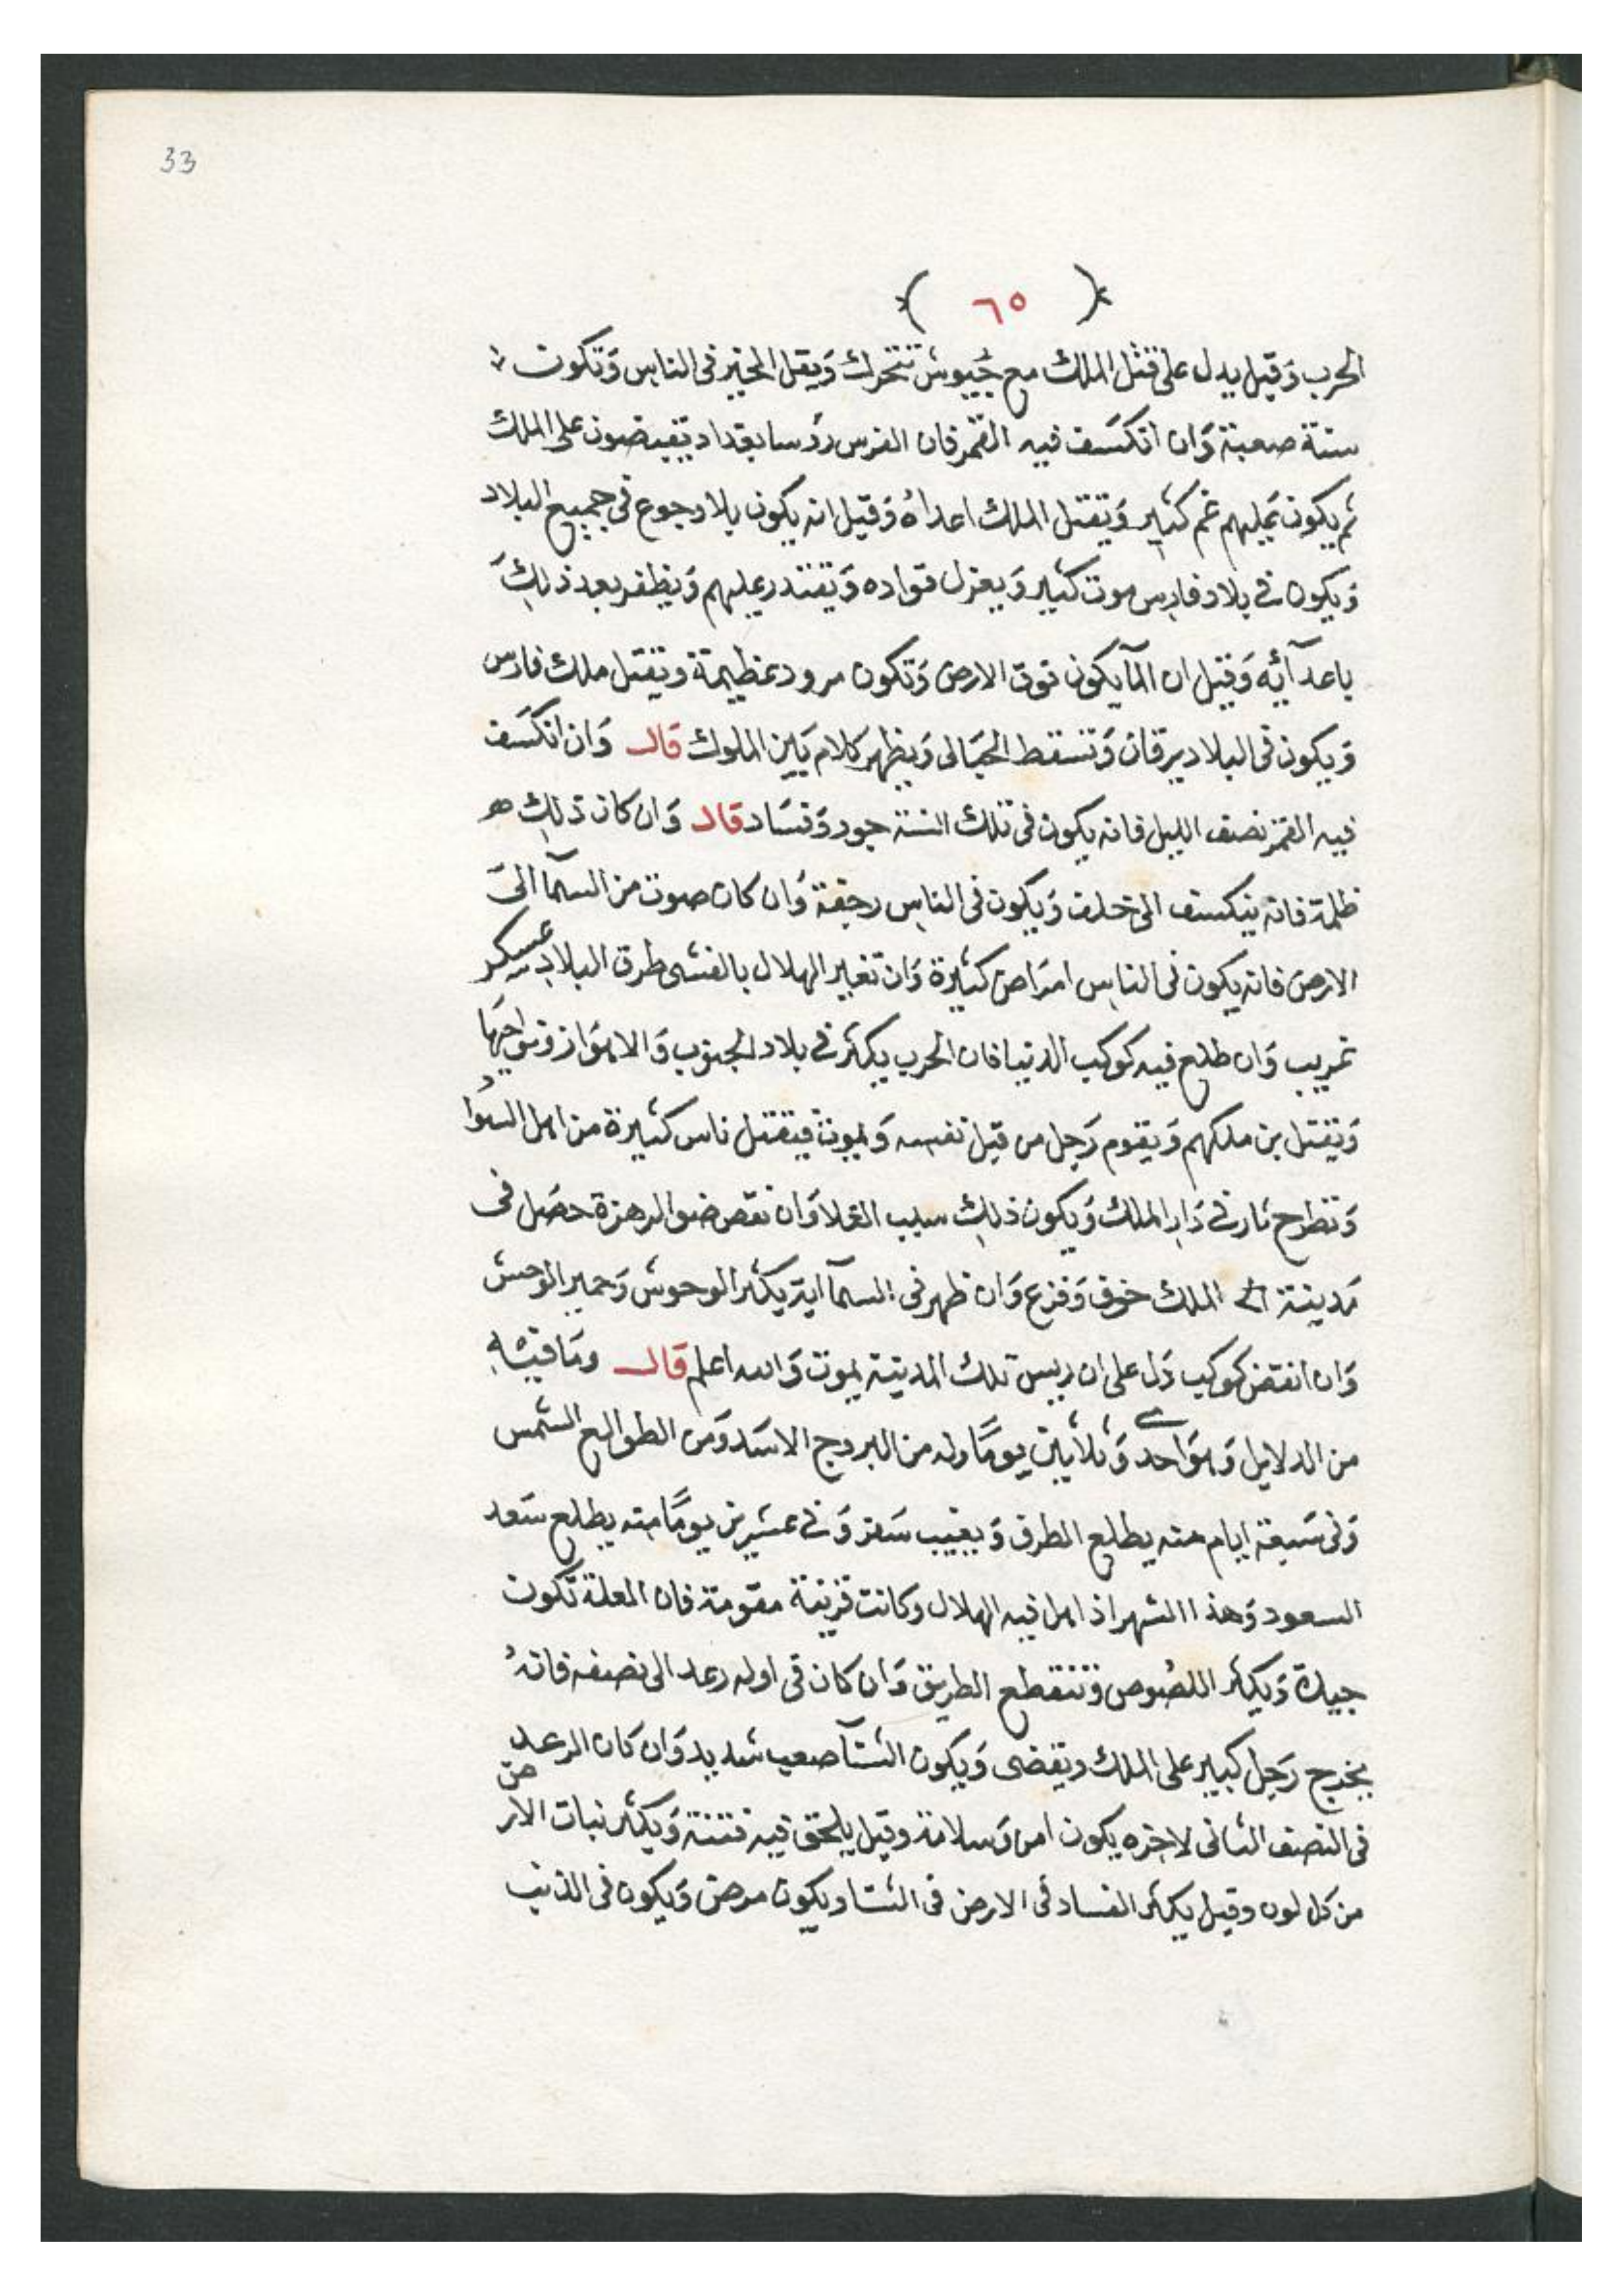 33
﴿ ٦٥ ﴾
الحرب وَقيل يدل على قتل الملك مع جيوش تتحرك وَيقل الخير فى الناس وَتكون
سنة صعبة وَان انكسَف فيه القمر فان الفرس رؤسا بغداد يقبضون على الملك
ثم يكون عَليهم غم كثير وَيقتل الملك اعداهُ وَقيل انه يكون بلا وجوع فى جميع البلاد
وَيكون فى بلاد فارس موت كثير وَيعزل قواده وَيقتدر عليهم وَيظفر بعد ذلكَ
باعدآئه وَقيل ان المآ يكون فوق الارض وَتكون مرود عظيمة ويقتل ملك فارس
وَيكون فى البلاد يرقان وَتسقط الحبَالى وَيظهر كلام بَين الملوك قال وَان انكسَف
فيه القمر نصف الليل فانه يكون فى تلك السنة جور وَفسَاد قال وَان كان ذلك
ظلمة فانه ينكسف الى خلف وَيكون فى الناس رجفة وَان كان صوت من السمآ الىَ
الارض فانه يكون فى الناس امرَاض كثيرة وَان تغير الهلال بالغشى طرق البلاد عسكر
غريب وَان طلع فيه كوكب الدنيا فان الحرب يكثر فى بلاد الجنوب وَالاهوَاز ونواحِيهَا
وَيقتل بن ملكهم وَيقوم رَجل من قبل نفسه وَيموت فيقتل ناس كثيرة من اهل السوَاد
وَتطرح نار فى دَار الملك وَيكون ذلك سبب الغلا وَان نقص ضو الزهرة حصَل فى
مَدينة الملك خوف وَفزع وَان ظهر فى السمآ اية يكثر الوحوش وَحمير الوحش
وَان انقض كوكب دَل على ان ريس تلك المدينة يموت وَالله اعلم قال ومَا فيه
من الدلايل وَهوَ احدى وَثلاثين يومًا وله من البروج الاسَد وَمن الطوالع الشمس
وَفى سَبعة ايام منه يطلع الطرف وَيغيب سَعد وَفى عشرين يومًا منه يطلع سَعد
السعود وَهذا الشهر اذ اهل فيه الهلال وكانت قرينة مقومة فان الغلة تكون
جيدة وَيكثر اللصُوص وَتنقطع الطريق وَان كان فى اوله رعد الى نصفه فانهُ
يخرج رَجل كبير على الملك ويقضى وَيكون الشتآ صعب شديد وَان كان الرعد
فى النصف الثانى لاخره يكون امن وَسلامة وقيل يلحق فيه فتنة وَيكثر نبات الارض
من كل لون وقيل يكثر الفساد فى الارض فى الشتا ويكون مرض وَيكون فى الذيب